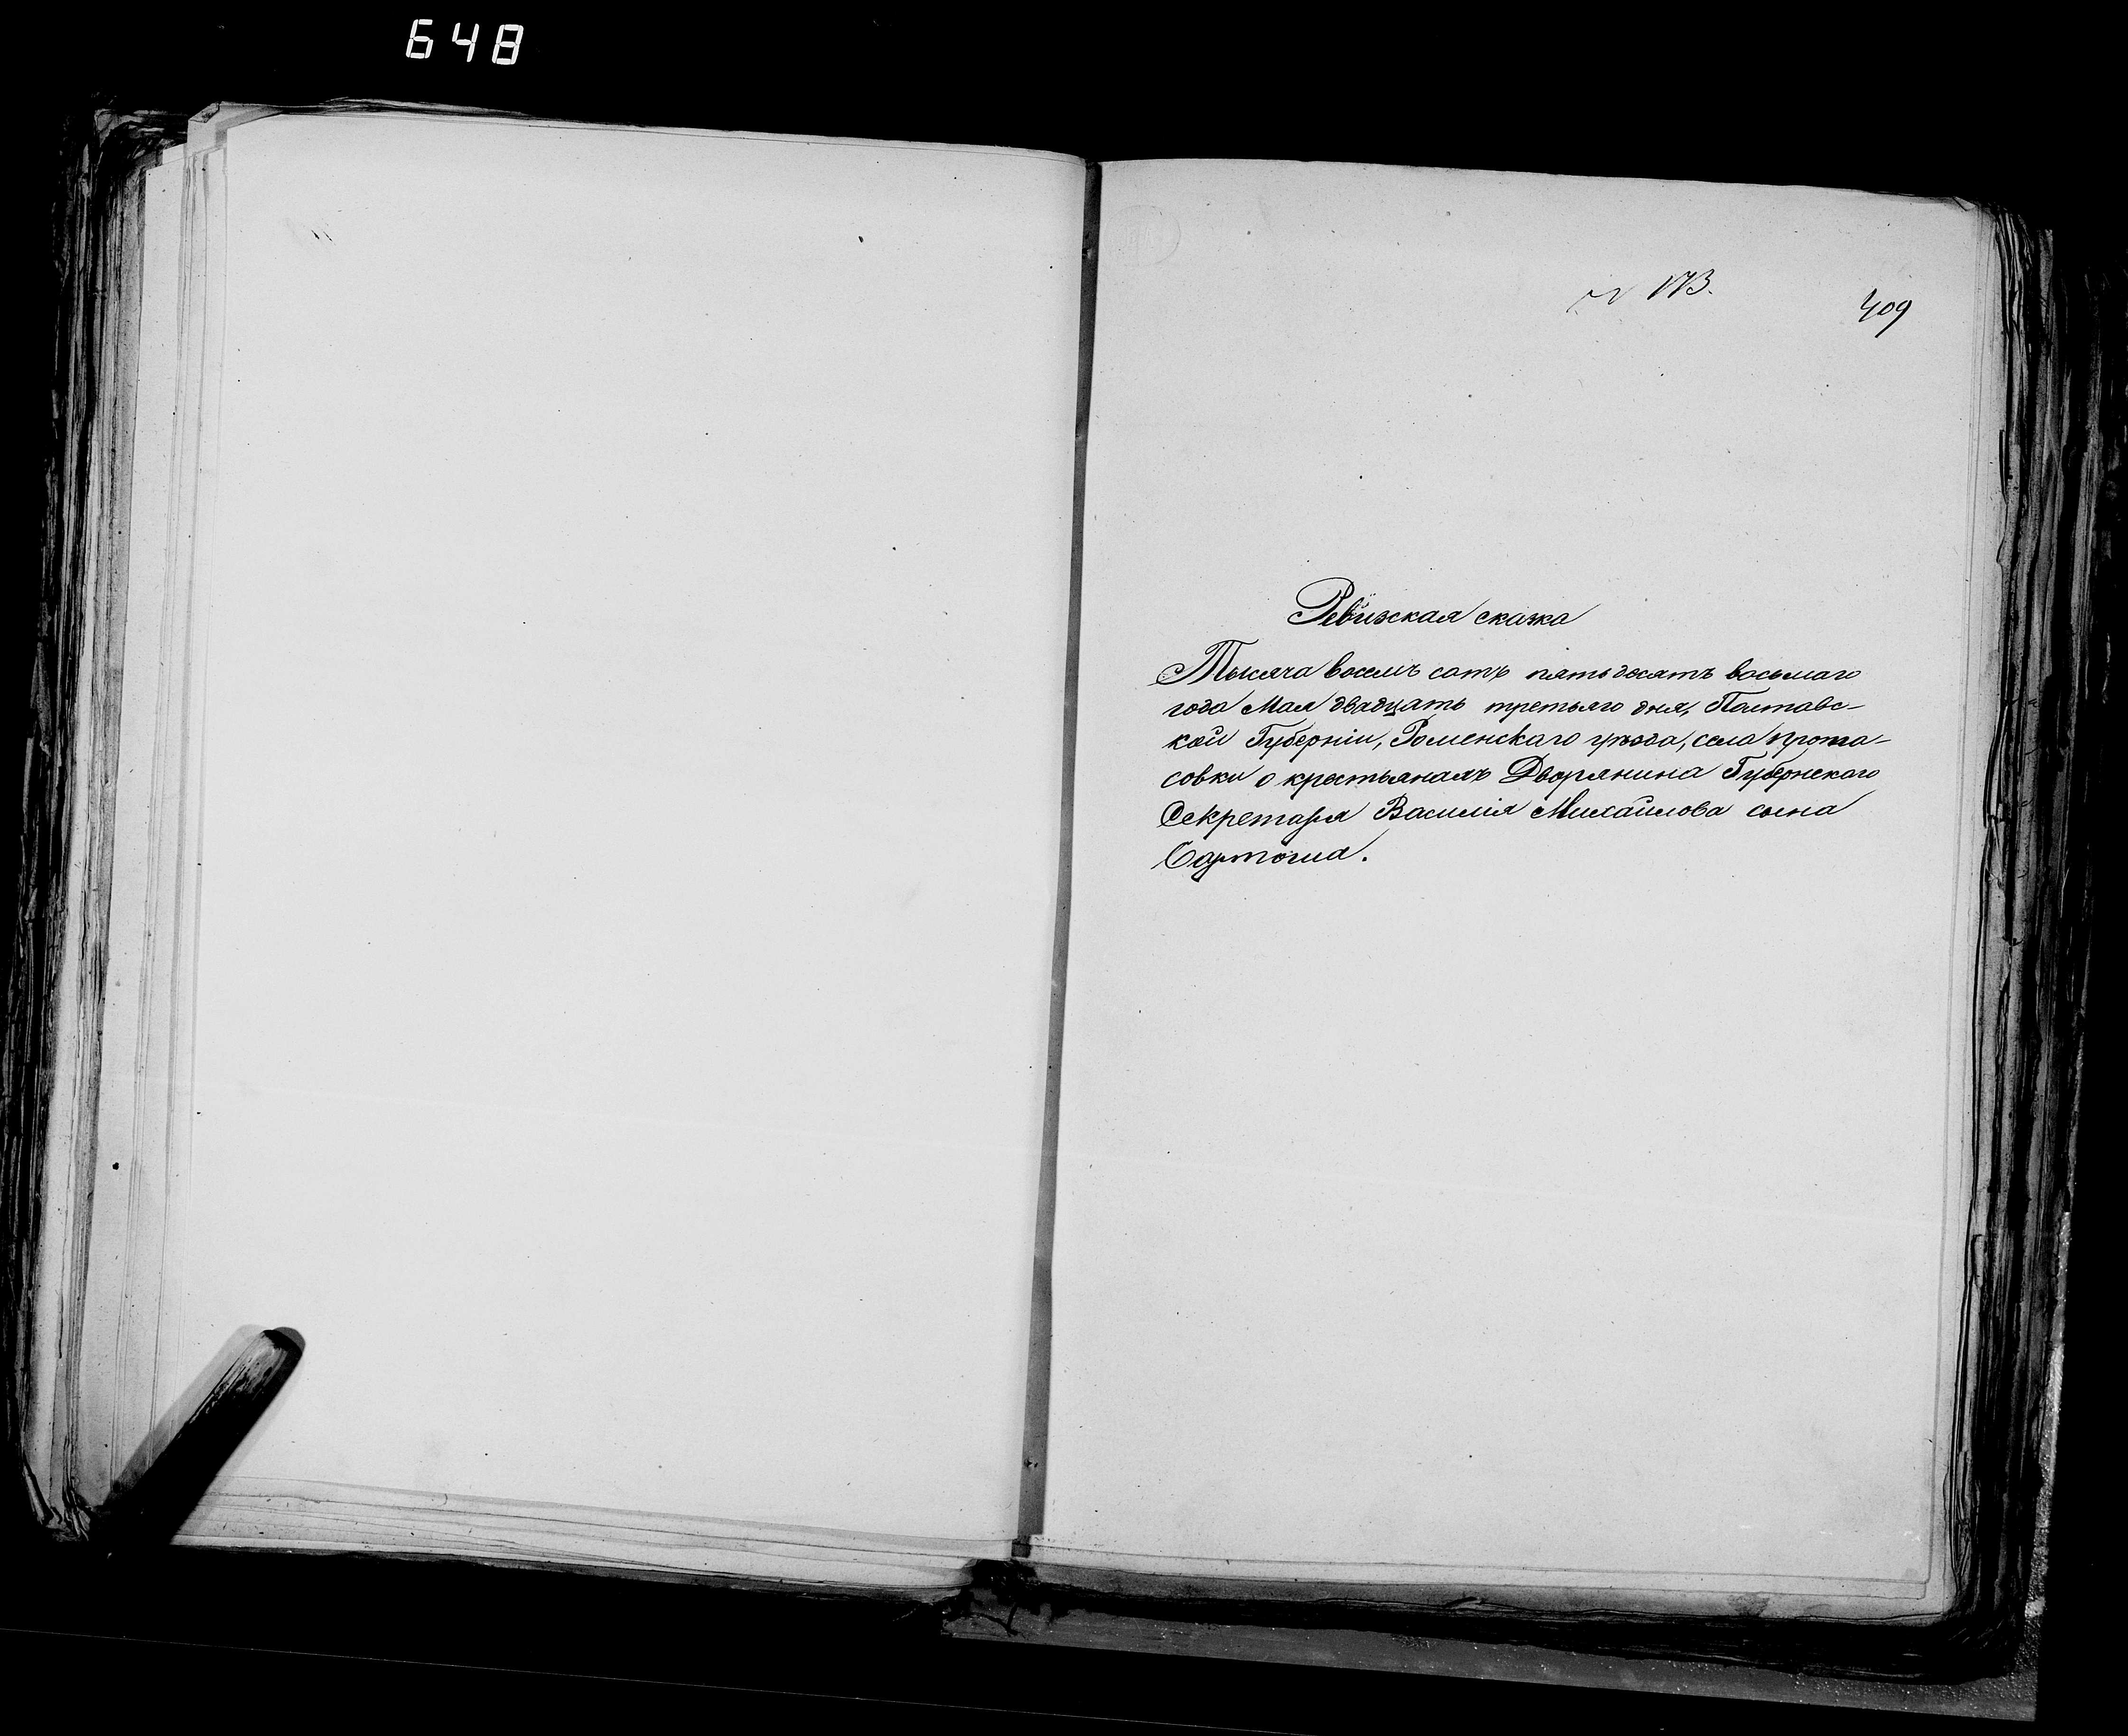 648
№ 173.
409
Ревизская сказка
Тысяча восемъ сотъ пятьдесятъ восьмаго
года Мая двадцать третьяго дня, Полтавс-
кой Губерніи, Роменскаго уѣзда, села Прота-
совки о крестьянахъ Дворянина Губернскаго
Секретаря Василія Михайлова сына